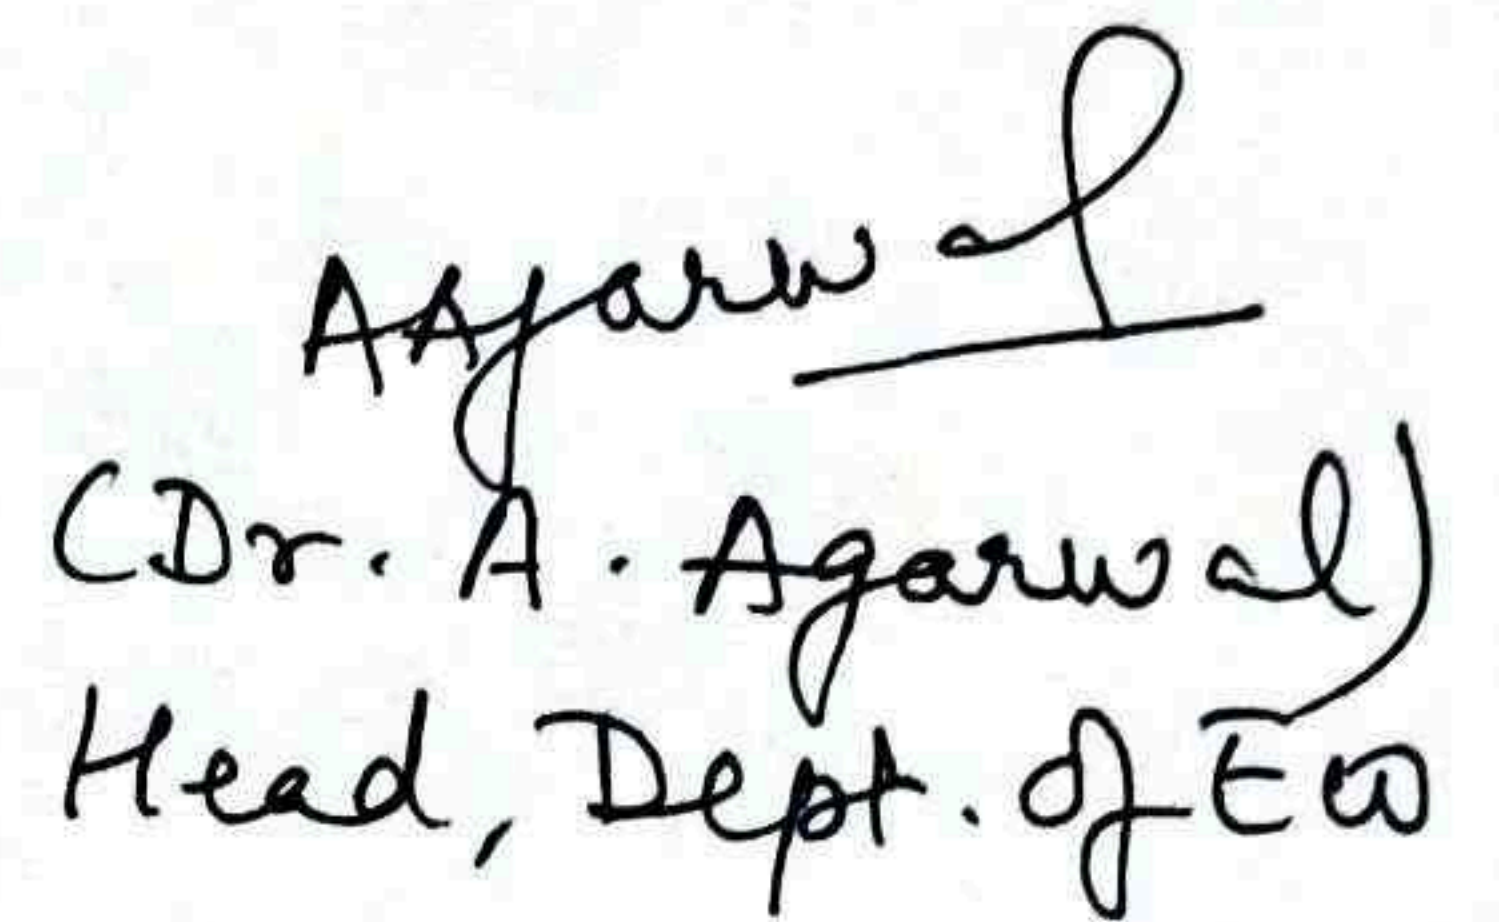 AAgarwal
(Dr. A. Agarwal)
Head, Dept. of Eco